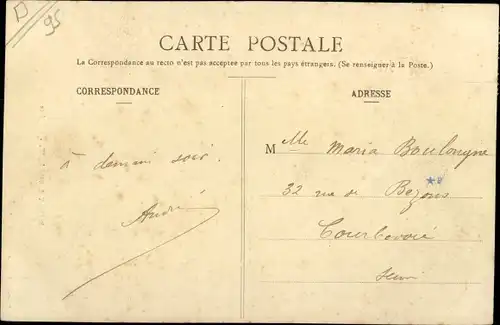 D
95
CARTE POSTALE
La Correspondance au recto n'est pas acceptée par tous les pays étrangers. (Se renseigner à la Poste.)
CORRESPONDANCE
à demain soir.
André
ADRESSE
Mlle Maria Boulongne
32 rue de Bezons
Courbevoie
Seine